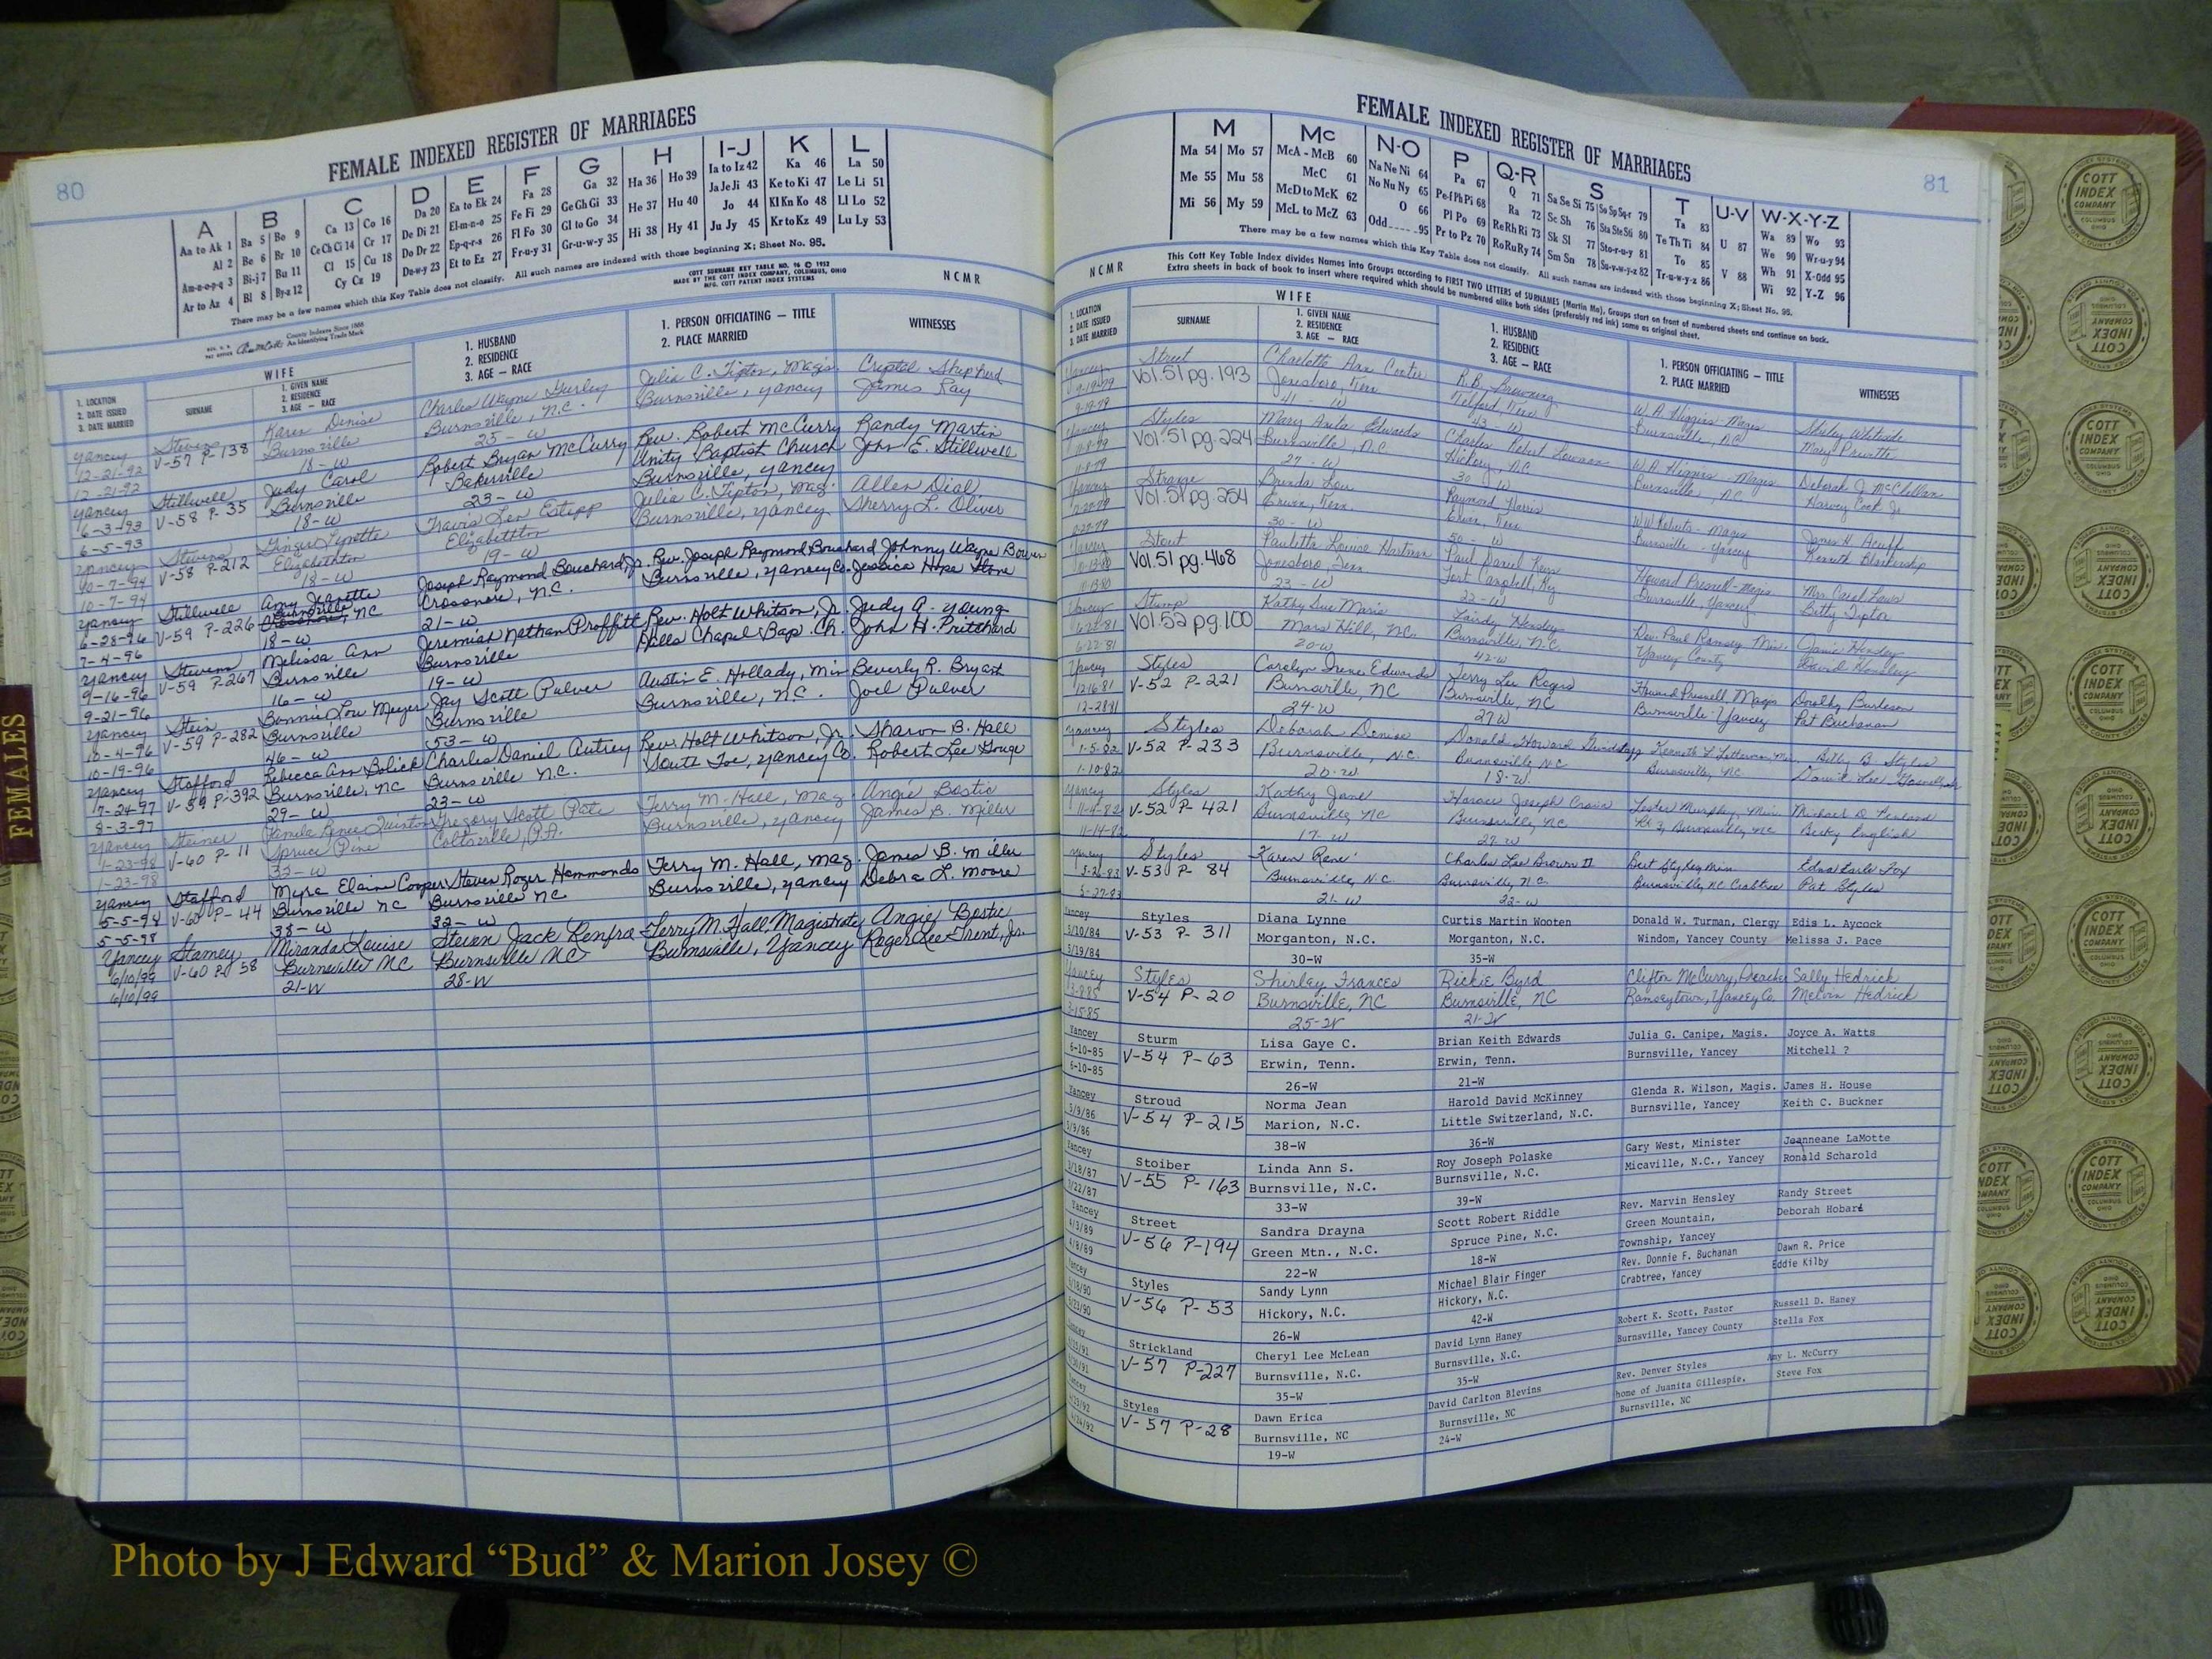 80
FEMALE INDEXED REGISTER OF MARRIAGES
A B C D E F G H I-J K L
Aa to Ak 1 Ba 5 Bo 9 Ca 13 Co 16 Da 20 Ea to Ek 24 Fa 28 Ga 32 Ha 36 Ho 39 Ia to Iz 42 Ka 46 La 50
Al 2 Be 6 Br 10 Ce Ch Ci 14 Cr 17 De Di 21 El-m-n-o 25 Fe Fi 29 Ge Gh Gi 33 He 37 Hu 40 Ja Je Ji 43 Ke to Ki 47 Le Li 51
Am-n-o-p-q 3 Bi-j 7 Bu 11 Cl 15 Cu 18 Do Dr 22 Ep-q-r-s 26 Fl Fo 30 Gl to Go 34 Hi 38 Hy 41 Jo 44 Kl Kn Ko 48 Ll Lo 52
Ar to Az 4 Bl 8 By-z 12 Cy Cz 19 Du-w-y 23 Et to Ez 27 Fr-u-y 31 Gr-u-w-y 35 Ju Jy 45 Kr to Kz 49 Lu Ly 53
There may be a few names which this Key Table does not classify. All such names are indexed with those beginning X; Sheet No. 95.
COTT SURNAME KEY TABLE NO. 96 © 1952
MADE BY THE COTT INDEX COMPANY, COLUMBUS, OHIO
MFG. COTT PATENT INDEX SYSTEMS
NCMR
County Indexes Since 1888
An Identifying Trade Mark
WIFE
1. LOCATION
2. DATE ISSUED
3. DATE MARRIED
SURNAME
1. GIVEN NAME
2. RESIDENCE
3. AGE — RACE
1. HUSBAND
2. RESIDENCE
3. AGE — RACE
1. PERSON OFFICIATING — TITLE
2. PLACE MARRIED
WITNESSES
Yancey Stevens Karen Denise Charles Wayne Gurley Julia C. Tipton, Magis. Crystal Shepherd
12-21-92 V-57 P-138 Burnsville Burnsville, N.C. Burnsville, Yancey James Ray
12-21-92 18-W 25-W
Yancey Stillwell Judy Carol Robert Bryan McCurry Rev. Robert McCurry Randy Martin
6-3-93 V-58 P-35 Burnsville Bakersville Unity Baptist Church John E. Stillwell
6-5-93 18-W 23-W Burnsville, Yancey
Yancey Stevens Ginger Lynette Travis Lee Estepp Julia C. Tipton, Mag. Allen Dial
10-7-94 V-58 P-212 Elizabethton Elizabethton Burnsville, Yancey Sherry L. Oliver
10-7-94 18-W 19-W
Yancey Stillwell Amy Jeanette Joseph Raymond Bouchard, Jr. Rev. Joseph Raymond Bouchard Johnny Wayne Bowen
6-28-96 V-59 P-226 Burnsville, NC Crossnore, N.C. Burnsville, Yancey Co. Jessica Hope Stone
7-4-96 18-W 21-W
Yancey Stevens Melissa Ann Jeremiah Nathan Proffitt Rev. Holt Whitson, Jr. Judy A. Young
9-16-96 V-59 P-267 Burnsville Burnsville Halls Chapel Bap. Ch. John H. Pritchard
9-21-96 16-W 19-W
Yancey Stein Bonnie Lou Meyer Jay Scott Pulver Austin E. Hollady, Min Beverly R. Bryant
10-4-96 V-59 P-282 Burnsville Burnsville Burnsville, N.C. Joel Pulver
10-19-96 46-W 53-W
Yancey Stafford Rebecca Ann Bolick Charles Daniel Autrey Rev. Holt Whitson, Jr. Sharon B. Hall
7-24-97 V-59 P-392 Burnsville, NC Burnsville N.C. South Toe, Yancey Co. Robert Lee Gouge
8-3-97 29-W 23-W
Yancey Steiner Pamela Renee Quinton Gregory Scott Pate Terry M. Hall, Mag. Angie Bostic
1-23-98 V-60 P-11 Spruce Pine Burnsville, Yancey James B. Miller
1-23-98 32-W
Yancey Stafford Myra Elaine Cooper Steven Roger Hammonds Terry M. Hall, Mag. James B. Miller
5-5-98 V-60 P-44 Burnsville NC Burnsville NC Burnsville, Yancey Debra L. Moore
5-5-98 38-W 32-W
Yancey Stamey Miranda Louise Steven Jack Renfro Terry M. Hall, Magistrate Angie Bostic
6/10/99 V-60 P-58 Burnsville NC Burnsville NC Burnsville, Yancey Roger Lee Trent, Jr.
6/10/99 21-W 28-W
FEMALES
81
FEMALE INDEXED REGISTER OF MARRIAGES
M Mc N-O P Q-R S T U-V W-X-Y-Z
Ma 54 Mo 57 McA - McB 60 Na Ne Ni 64 Pa 67 Q 71 Sa Se Si 75 So Sp Sq-r 79 Ta 83 U 87 Wa 89 Wo 93
Me 55 Mu 58 McC 61 No Nu Ny 65 Pe-f Ph Pi 68 Ra 72 Sc Sh 76 Sta Ste Sti 80 Te Th Ti 84 V 88 We 90 Wr-u-y 94
Mi 56 My 59 McD to McK 62 O 66 Pl Po 69 Re Rh Ri 73 Sk Sl 77 Sto-r-u-y 81 To 85 Wh 91 X-Odd 95
McL to McZ 63 Odd 95 Pr to Pz 70 Ro Ru Ry 74 Sm Sn 78 Su-v-w-y-z 82 Tr-u-w-y-z 86 Wi 92 Y-Z 96
There may be a few names which this Key Table does not classify. All such names are indexed with those beginning X; Sheet No. 95.
NCMR
This Cott Key Table Index divides Names into Groups according to FIRST TWO LETTERS of SURNAMES (Martin Ma). Groups start on front of numbered sheets and continue on back.
Extra sheets in back of book to insert where required which should be numbered alike both sides (preferably red ink) same as original sheet.
WIFE
1. LOCATION
2. DATE ISSUED
3. DATE MARRIED
SURNAME
1. GIVEN NAME
2. RESIDENCE
3. AGE — RACE
1. HUSBAND
2. RESIDENCE
3. AGE — RACE
1. PERSON OFFICIATING — TITLE
2. PLACE MARRIED
WITNESSES
Yancey Street Charlotte Ann Coates R.B. Browning W.A. Higgins - Magis Shirley Whiteside
9-19-79 Vol. 51 pg. 193 Jonesboro, Tenn Telford, Tenn Burnsville, NC Mary
9-19-79 41-W 43-W
Yancey Styles Mary Anita Edwards Charles Robert W.A. Higgins - Magis Deborah J. McClellan
11-8-79 Vol. 51 pg. 224 Burnsville, N.C. Hickory, NC Burnsville, NC Harvey Cook Jr
11-8-79 27-W 30-W
Yancey Strange Brenda Lou Raymond Harris Magis James H. Acuff
Vol. 51 pg. 254 Erwin, Tenn. Erwin, Tenn Burnsville - Yancey Kenneth Blankenship
30-W 50-W
Yancey Stout Pauletta Louise Hartman Paul Daniel Keys Howard Presnell - Magis Mrs. Carol Laws
10-13-80 Vol. 51 pg. 468 Jonesboro, Tenn Fort Campbell, Ky Burnsville, Yancey Betty Tipton
10-13-80 23-W 22-W
Yancey Stump Kathy Sue Maris Hensley Rev. Paul Ramsey Min. Janie Hensley
6-22-81 Vol 52 pg. 100 Mars Hill, N.C. Burnsville, N.C. Yancey County David Hensley
6-22-81 20-W 42-W
Yancey Styles Carolyn Irene Edwards Terry Lee Rogers Howard Presnell, Magis Dorothy Burleson
12-16-81 V-52 P-221 Burnsville, NC Burnsville, NC Burnsville - Yancey Pat Buchanan
12-28-81 24-W 27 W
Yancey Styles Deborah Denise Donald Howard Grindstaff Kenneth L. Letterman, Min. Billy B. Styles
1-5-82 V-52 P-233 Burnsville, N.C. Burnsville NC Burnsville, NC
1-10-82 20-W 18-W
Yancey Styles Kathy Jane Horace Joseph Crain Lester Murphy, Min Michael D.
11-4-82 V-52 P-421 Burnsville NC Burnsville, NC Rt 3, Burnsville, NC Becky English
11-14-82 17-W 22 W
Yancey Styles Karen Rene' Charles Lee Brown II Bert Styles Min Edna Earle Fox
5-26-83 V-53 P- 84 Burnsville, N.C. Burnsville, N.C. Burnsville, NC Crabtree Pat Styles
5-27-83 21-W 22-W
Yancey Styles Diana Lynne Curtis Martin Wooten Donald W. Turman, Clergy Edis L. Aycock
5/10/84 V-53 P- 311 Morganton, N.C. Morganton, N.C. Windom, Yancey County Melissa J. Pace
5/19/84 30-W 35-W
Yancey Styles Shirley Frances Rickie Byrd Clifton McCurry, Preacher Sally Hedrick
3-8-85 V-54 P-20 Burnsville, NC Burnsville, NC Ramseytown, Yancey Co. Melvin Hedrick
3-15-85 25-W 21-W
Yancey Sturm Lisa Gaye C. Brian Keith Edwards Julia G. Canipe, Magis. Joyce A. Watts
6-10-85 V-54 P-63 Erwin, Tenn. Erwin, Tenn. Burnsville, Yancey Mitchell ?
6-10-85 26-W 21-W
Yancey Stroud Norma Jean Harold David McKinney Glenda R. Wilson, Magis. James H. House
5/9/86 V-54 P-215 Marion, N.C. Little Switzerland, N.C. Burnsville, Yancey Keith C. Buckner
5/9/86 38-W 36-W
Yancey Stoiber Linda Ann S. Roy Joseph Polaske Gary West, Minister Jeanneane LaMotte
3/18/87 V-55 P-163 Burnsville, N.C. Burnsville, N.C. Micaville, N.C., Yancey Ronald Scharold
3/22/87 33-W 39-W
Yancey Street Sandra Drayna Scott Robert Riddle Rev. Marvin Hensley Randy Street
4/3/89 V-56 P-194 Green Mtn., N.C. Spruce Pine, N.C. Green Mountain, Deborah Hobard
4/8/89 22-W 18-W Township, Yancey
Yancey Styles Sandy Lynn Michael Blair Finger Rev. Donnie F. Buchanan Dawn R. Price
6/18/90 V-56 P-53 Hickory, N.C. Hickory, N.C. Crabtree, Yancey Eddie Kilby
6/23/90 26-W 42-W
Yancey Strickland Cheryl Lee McLean David Lynn Haney Robert K. Scott, Pastor Russell D. Haney
V-57 P-227 Burnsville, N.C. Burnsville, N.C. Burnsville, Yancey County Stella Fox
35-W 35-W
Yancey Styles Dawn Erica David Carlton Blevins Rev. Denver Styles Amy L. McCurry
V-57 P-28 Burnsville, NC Burnsville, NC home of Juanita Gillespie, Steve Fox
4/24/92 19-W 24-W Burnsville, NC
COTT INDEX COMPANY COLUMBUS OHIO
Photo by J Edward “Bud” & Marion Josey ©